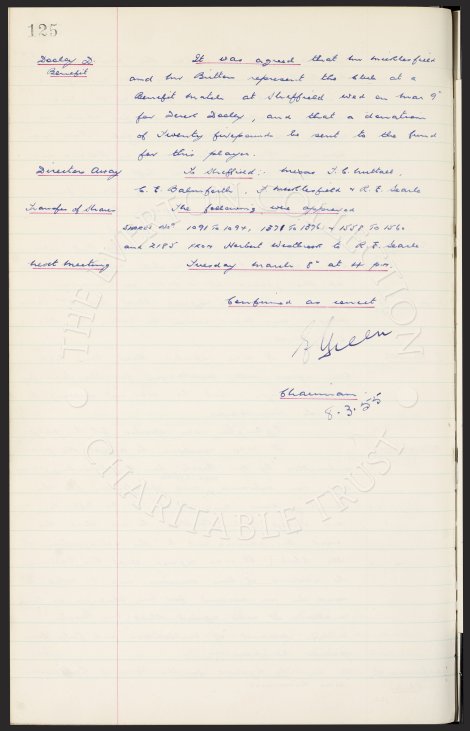 125
Dooley D. It was agreed that Mr Micklesfield
Benefit and Mr Britton represent the Club at a
Benefit match at Sheffield Wed on Mar 9th
for Derek Dooley, and that a donation
of Twenty five pounds be sent to the fund
for this player.
Directors Away To Sheffield:- Messrs T. C. Nuttall,
C. E. Balmforth, F Micklesfield & R. E. Searle
Transfer of Shares The following were approved
Shares Nos 1091 to 1094, 1878 to 1876 & 1558 to 1560
and 2185 from Herbert Westbrook to R. E. Searle
Next Meeting Tuesday March 8th at 4 pm
Confirmed as correct
E Green
Chairman
8.3.55
THE EVERTON COLLECTION
CHARITABLE TRUST